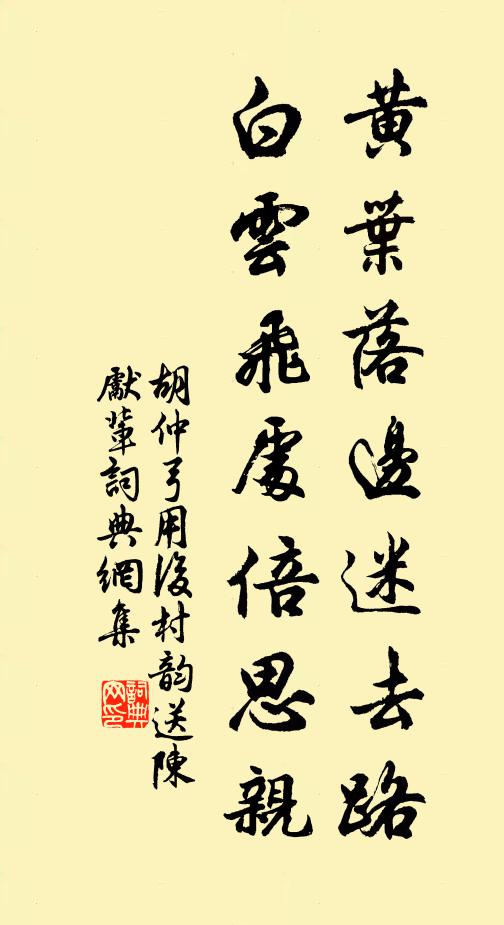 黃葉落邊迷去路
白雲飛處倍思親
胡仲弓用後村韵送陳
獻輩詞典網集
詞典網印